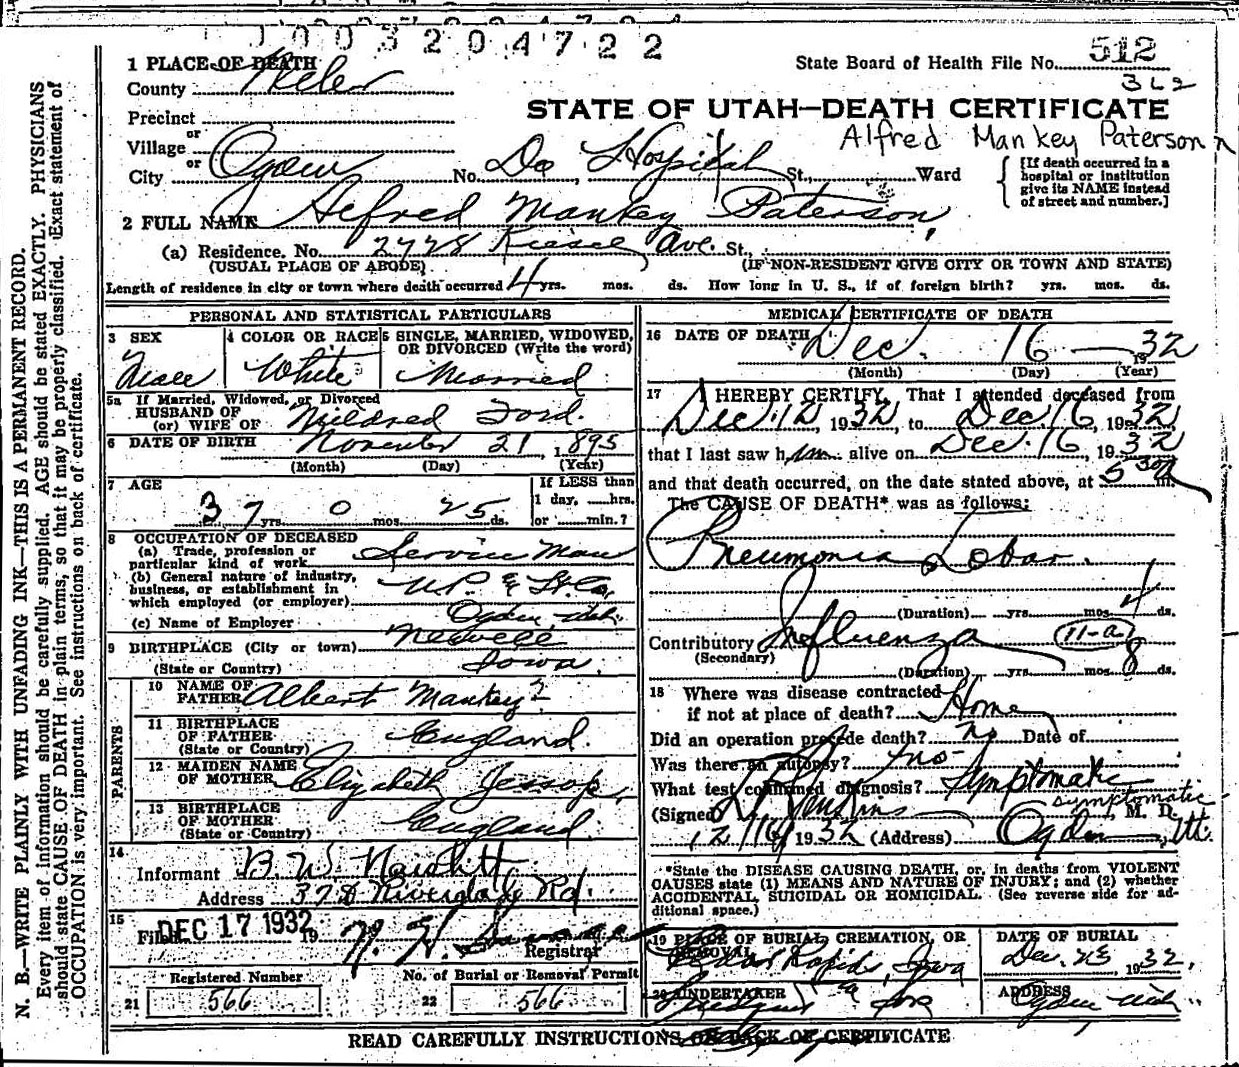 0 0 3 2 0 4 7 2 2
State Board of Health File No. 512
362
1 PLACE OF DEATH
County
STATE OF UTAH—DEATH CERTIFICATE
Alfred Mankey Paterson
Precinct
or
Village
or
City Ogden No. Dee Hospital St., Ward
[If death occurred in a hospital or institution give its NAME instead of street and number.]
2 FULL NAME Alfred Mankey Paterson
(a) Residence. No. 2728 Kiesel Ave. St.,
(USUAL PLACE OF ABODE) (IF NON-RESIDENT GIVE CITY OR TOWN AND STATE)
Length of residence in city or town where death occurred 4 yrs. mos. ds. How long in U. S., if of foreign birth? yrs. mos. ds.
PERSONAL AND STATISTICAL PARTICULARS
3 SEX 4 COLOR OR RACE 5 SINGLE, MARRIED, WIDOWED, OR DIVORCED (Write the word)
Male White Married
5a If Married, Widowed, or Divorced
HUSBAND OF
(or) WIFE OF Mildred Ford
6 DATE OF BIRTH November 21, 1895
(Month) (Day) (Year)
7 AGE If LESS than
1 day, hrs.
37 yrs. 0 mos. 25 ds. or min.?
8 OCCUPATION OF DECEASED
(a) Trade, profession or
particular kind of work Service Man
(b) General nature of industry,
business, or establishment in
which employed (or employer) U.P. & Lt. Co.
(c) Name of Employer Ogden, Utah
9 BIRTHPLACE (City or town) Newell
(State or Country) Iowa
PARENTS
10 NAME OF
FATHER Albert Mankey
11 BIRTHPLACE
OF FATHER
(State or Country) England.
12 MAIDEN NAME
OF MOTHER Elizabeth Jessop
13 BIRTHPLACE
OF MOTHER
(State or Country) England
14
Informant B. W.
Address Rd.
15
Filed DEC 17 1932 19
Registrar
Registered Number No. of Burial or Removal Permit
21 566 22 566
MEDICAL CERTIFICATE OF DEATH
16 DATE OF DEATH Dec. 16 — 1932
(Month) (Day) (Year)
17 I HEREBY CERTIFY, That I attended deceased from
Dec. 12, 1932, to Dec. 16, 1932
that I last saw him alive on Dec. 16, 1932
and that death occurred, on the date stated above, at 5 30 a m.
The CAUSE OF DEATH* was as follows:
Pneumonia Lobar.
(Duration) yrs. mos. 4 ds.
Contributory Influenza 11-a
(Secondary)
(Duration) yrs. mos. 8 ds.
18 Where was disease contracted
if not at place of death? Home
Did an operation precede death? no Date of
Was there an autopsy? no
What test confirmed diagnosis? Symptomatic
symptomatic
(Signed) M. D.
12/16/1932 (Address) Ogden, Ut.
*State the DISEASE CAUSING DEATH, or, in deaths from VIOLENT
CAUSES state (1) MEANS AND NATURE OF INJURY; and (2) whether
ACCIDENTAL, SUICIDAL OR HOMICIDAL. (See reverse side for ad-
ditional space.)
19 PLACE OF BURIAL, CREMATION, OR REMOVAL DATE OF BURIAL
Rapids, Iowa Dec. 23, 1932.
20 UNDERTAKER ADDRESS
Ogden Utah
READ CAREFULLY INSTRUCTIONS ON BACK OF CERTIFICATE
N. B.—WRITE PLAINLY WITH UNFADING INK—THIS IS A PERMANENT RECORD.
Every item of information should be carefully supplied. AGE should be stated EXACTLY. PHYSICIANS
should state CAUSE OF DEATH in plain terms, so that it may be properly classified. Exact statement of
OCCUPATION is very important. See instructions on back of certificate.